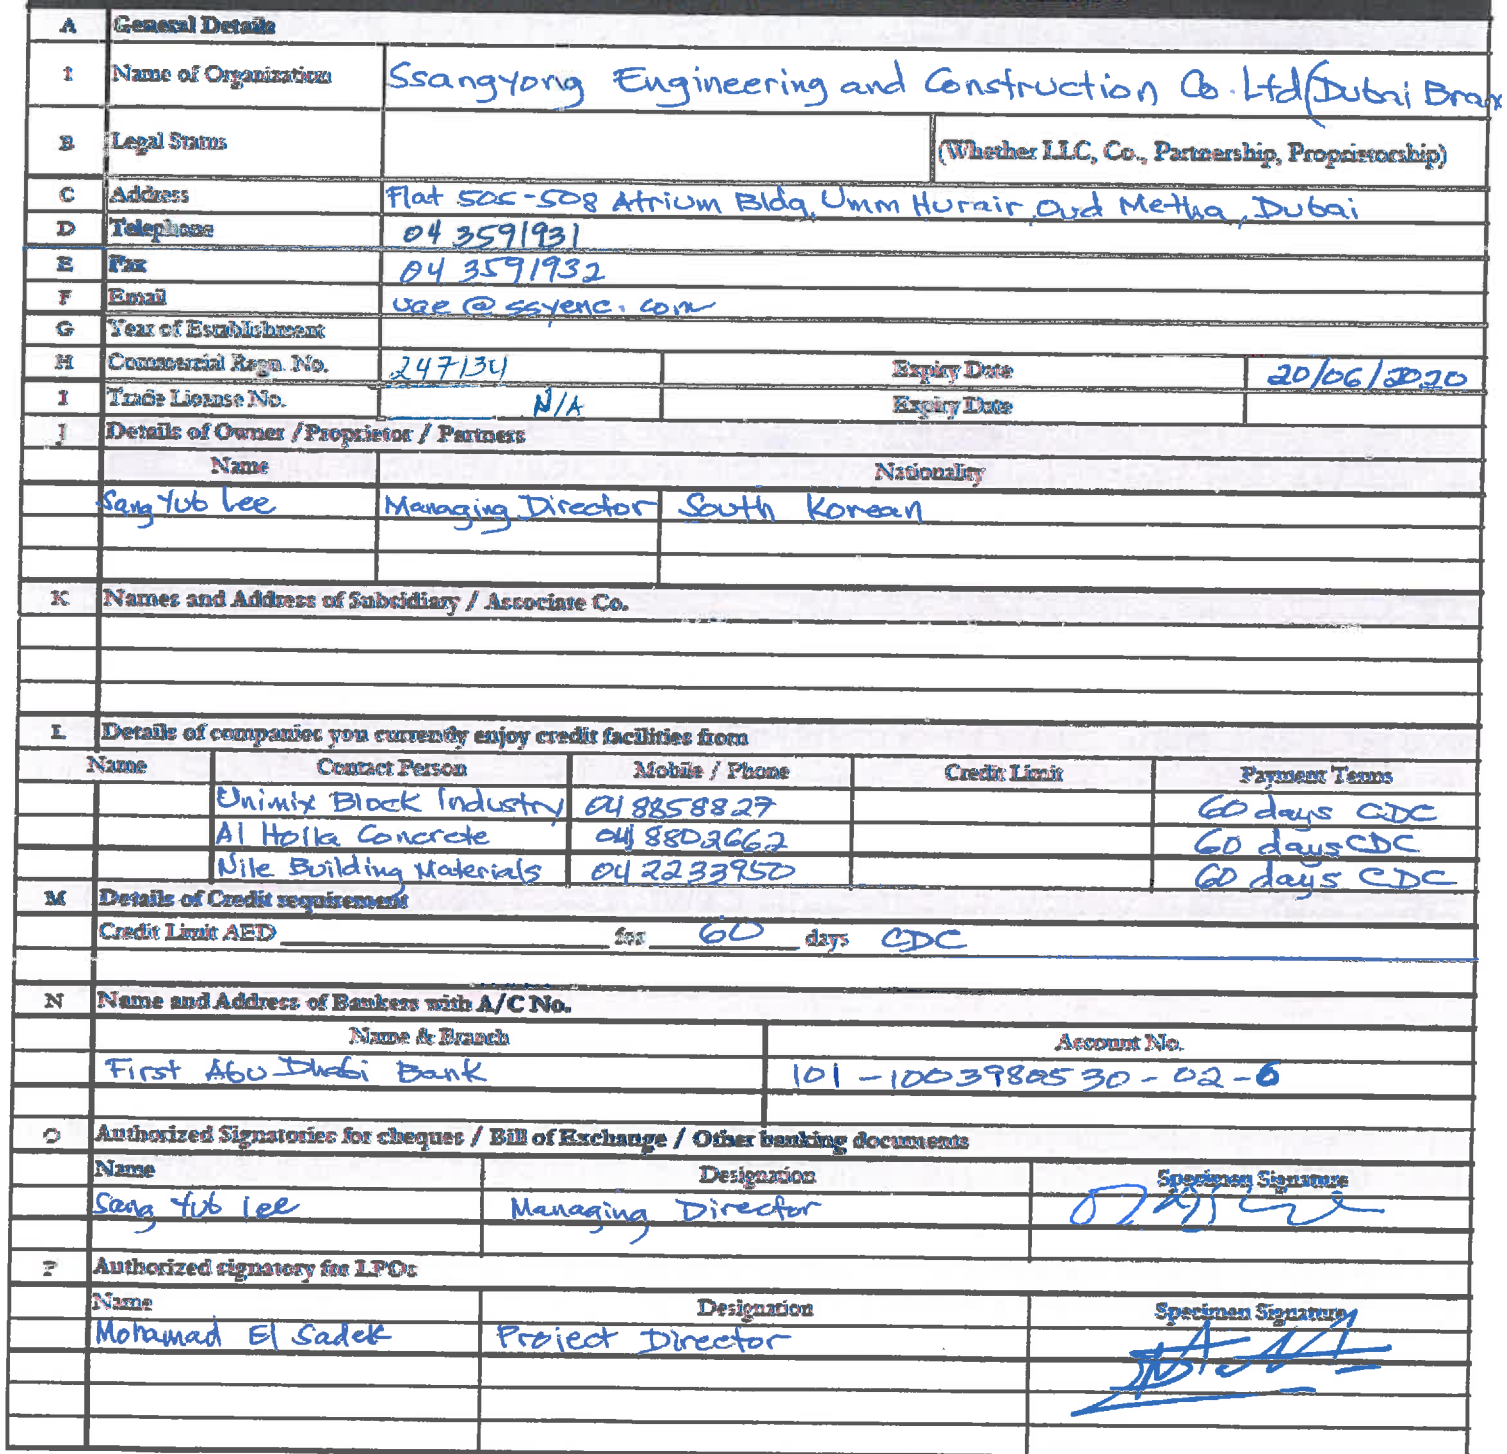 A General Details
1 Name of Organization Ssangyong Engineering and Construction Co. Ltd (Dubai Bran
B Legal Status (Whether LLC, Co., Partnership, Proprietorship)
C Address Flat 505-508 Atrium Bldg, Umm Hurair, Oud Metha, Dubai
D Telephone 04 3591931
E Fax 04 3591932
F Email uae@ssyenc.com
G Year of Establishment
H Commercial Regn. No. 247134 Expiry Date 20/06/2020
I Trade License No. N/A Expiry Date
J Details of Owner / Proprietor / Partners
Name Nationality
Sang Yub Lee Managing Director South Korean
K Names and Address of Subsidiary / Associate Co.
L Details of companies you currently enjoy credit facilities from
Name Contact Person Mobile / Phone Credit Limit Payment Terms
Unimix Block Industry 04 8858827 60 days CDC
Al Hofka Concrete 04 8802662 60 days CDC
Nile Building Materials 04 2233950 60 days CDC
M Details of Credit requirement
Credit Limit AED for 60 days CDC
N Name and Address of Bankers with A/C No.
Name & Branch Account No.
First Abu Dhabi Bank 101-1003980530-02-6
O Authorized Signatories for cheques / Bill of Exchange / Other banking documents
Name Designation Specimen Signature
Sang Yub lee Managing Director
P Authorized signatory for LPOs
Name Designation Specimen Signature
Mohamad El Sadek Project Director